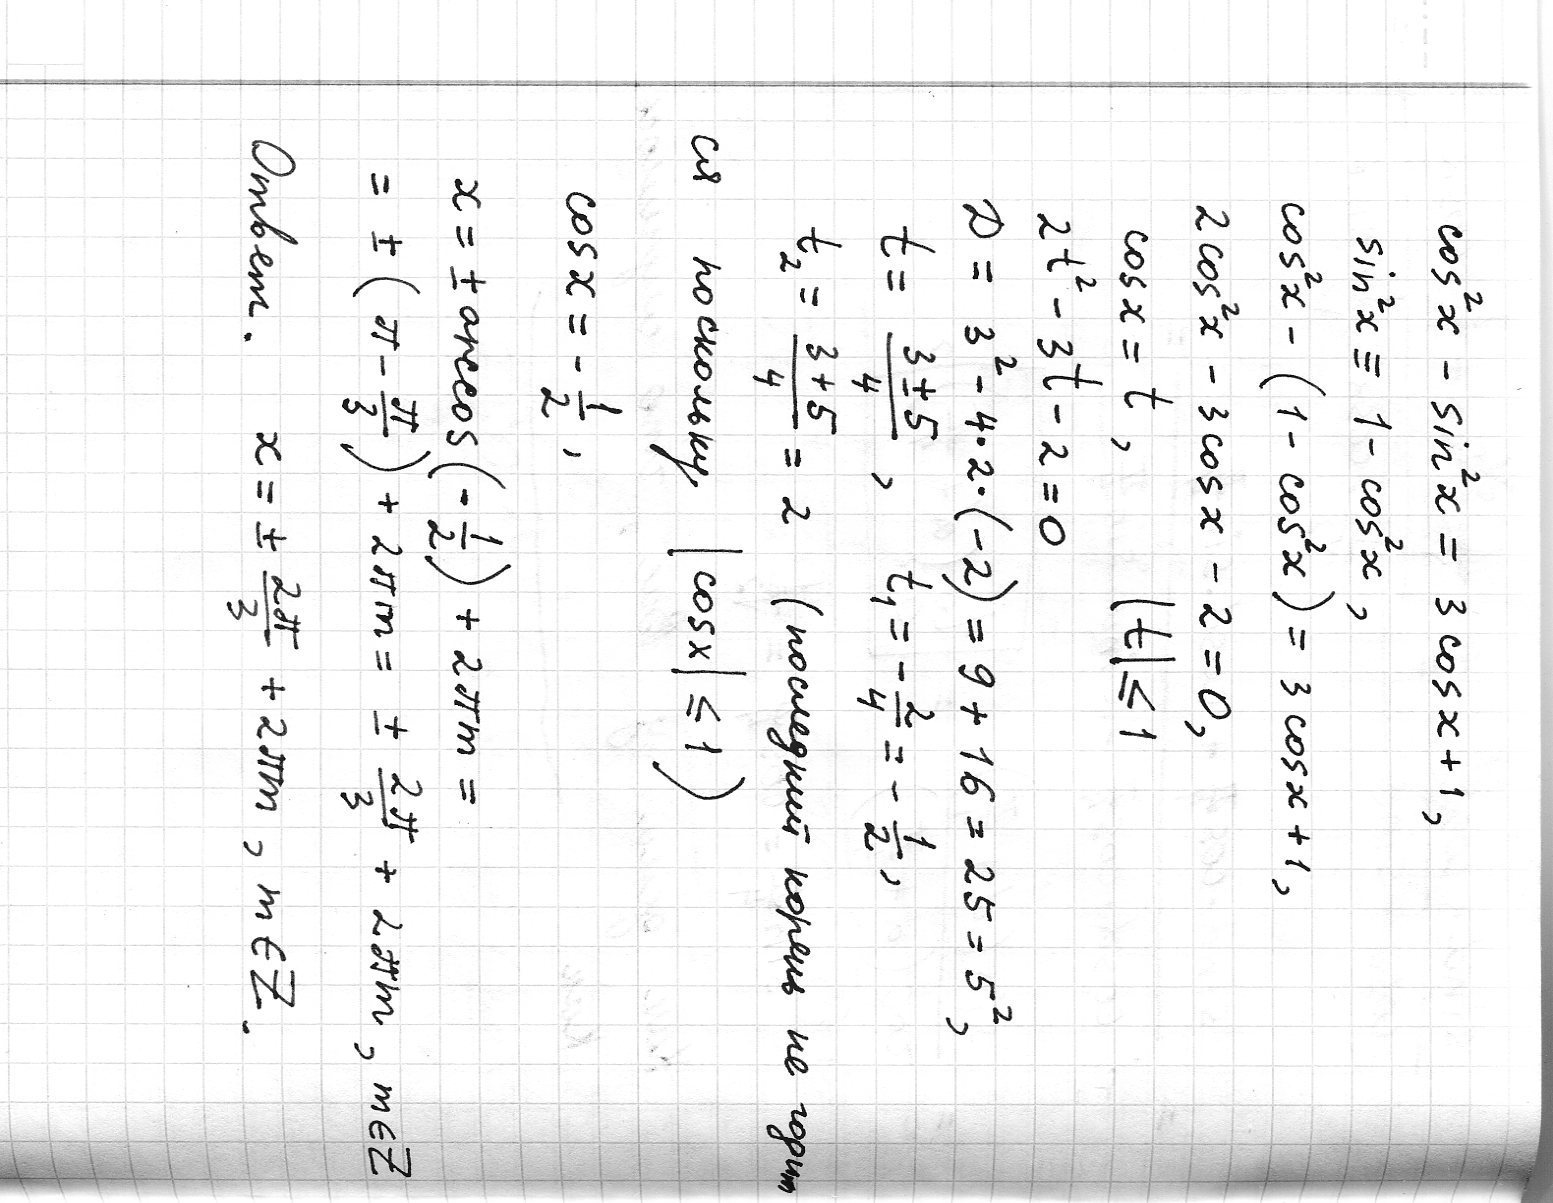 cos²x - sin²x = 3 cosx + 1,
sin²x ≡ 1 - cos²x,
cos²x - (1 - cos²x) = 3 cosx + 1,
2cos²x - 3cosx - 2 = 0,
cosx = t, |t| ≤ 1
2t² - 3t - 2 = 0
D = 3² - 4·2·(-2) = 9 + 16 = 25 = 5²,
t = (3 ± 5)/4, t₁ = -2/4 = -1/2,
t₂ = (3+5)/4 = 2 (последний корень не годит
ся поскольку |cosx| ≤ 1)
cosx = -1/2,
x = ± arccos(-1/2) + 2πm =
= ± (π - π/3) + 2πm = ± 2π/3 + 2πm, m∈Z
Ответ. x = ± 2π/3 + 2πm, m∈Z.